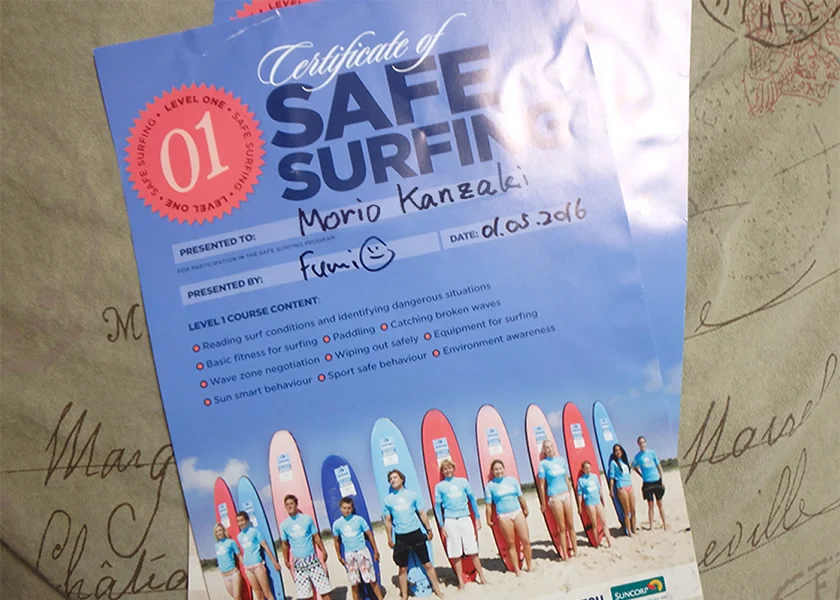 LEVEL
Certificate of
SAFE
SURFING
LEVEL ONE • SAFE SURFING • LEVEL ONE • SAFE SURFING •
01
PRESENTED TO: Morio Kanzaki
FOR PARTICIPATION IN THE SAFE SURFING PROGRAM
PRESENTED BY: Fumi DATE: 01.05.2016
LEVEL 1 COURSE CONTENT:
Reading surf conditions and identifying dangerous situations
Basic fitness for surfing Paddling Catching broken waves
Wave zone negotiation Wiping out safely Equipment for surfing
Sun smart behaviour Sport safe behaviour Environment awareness
SUNCORP